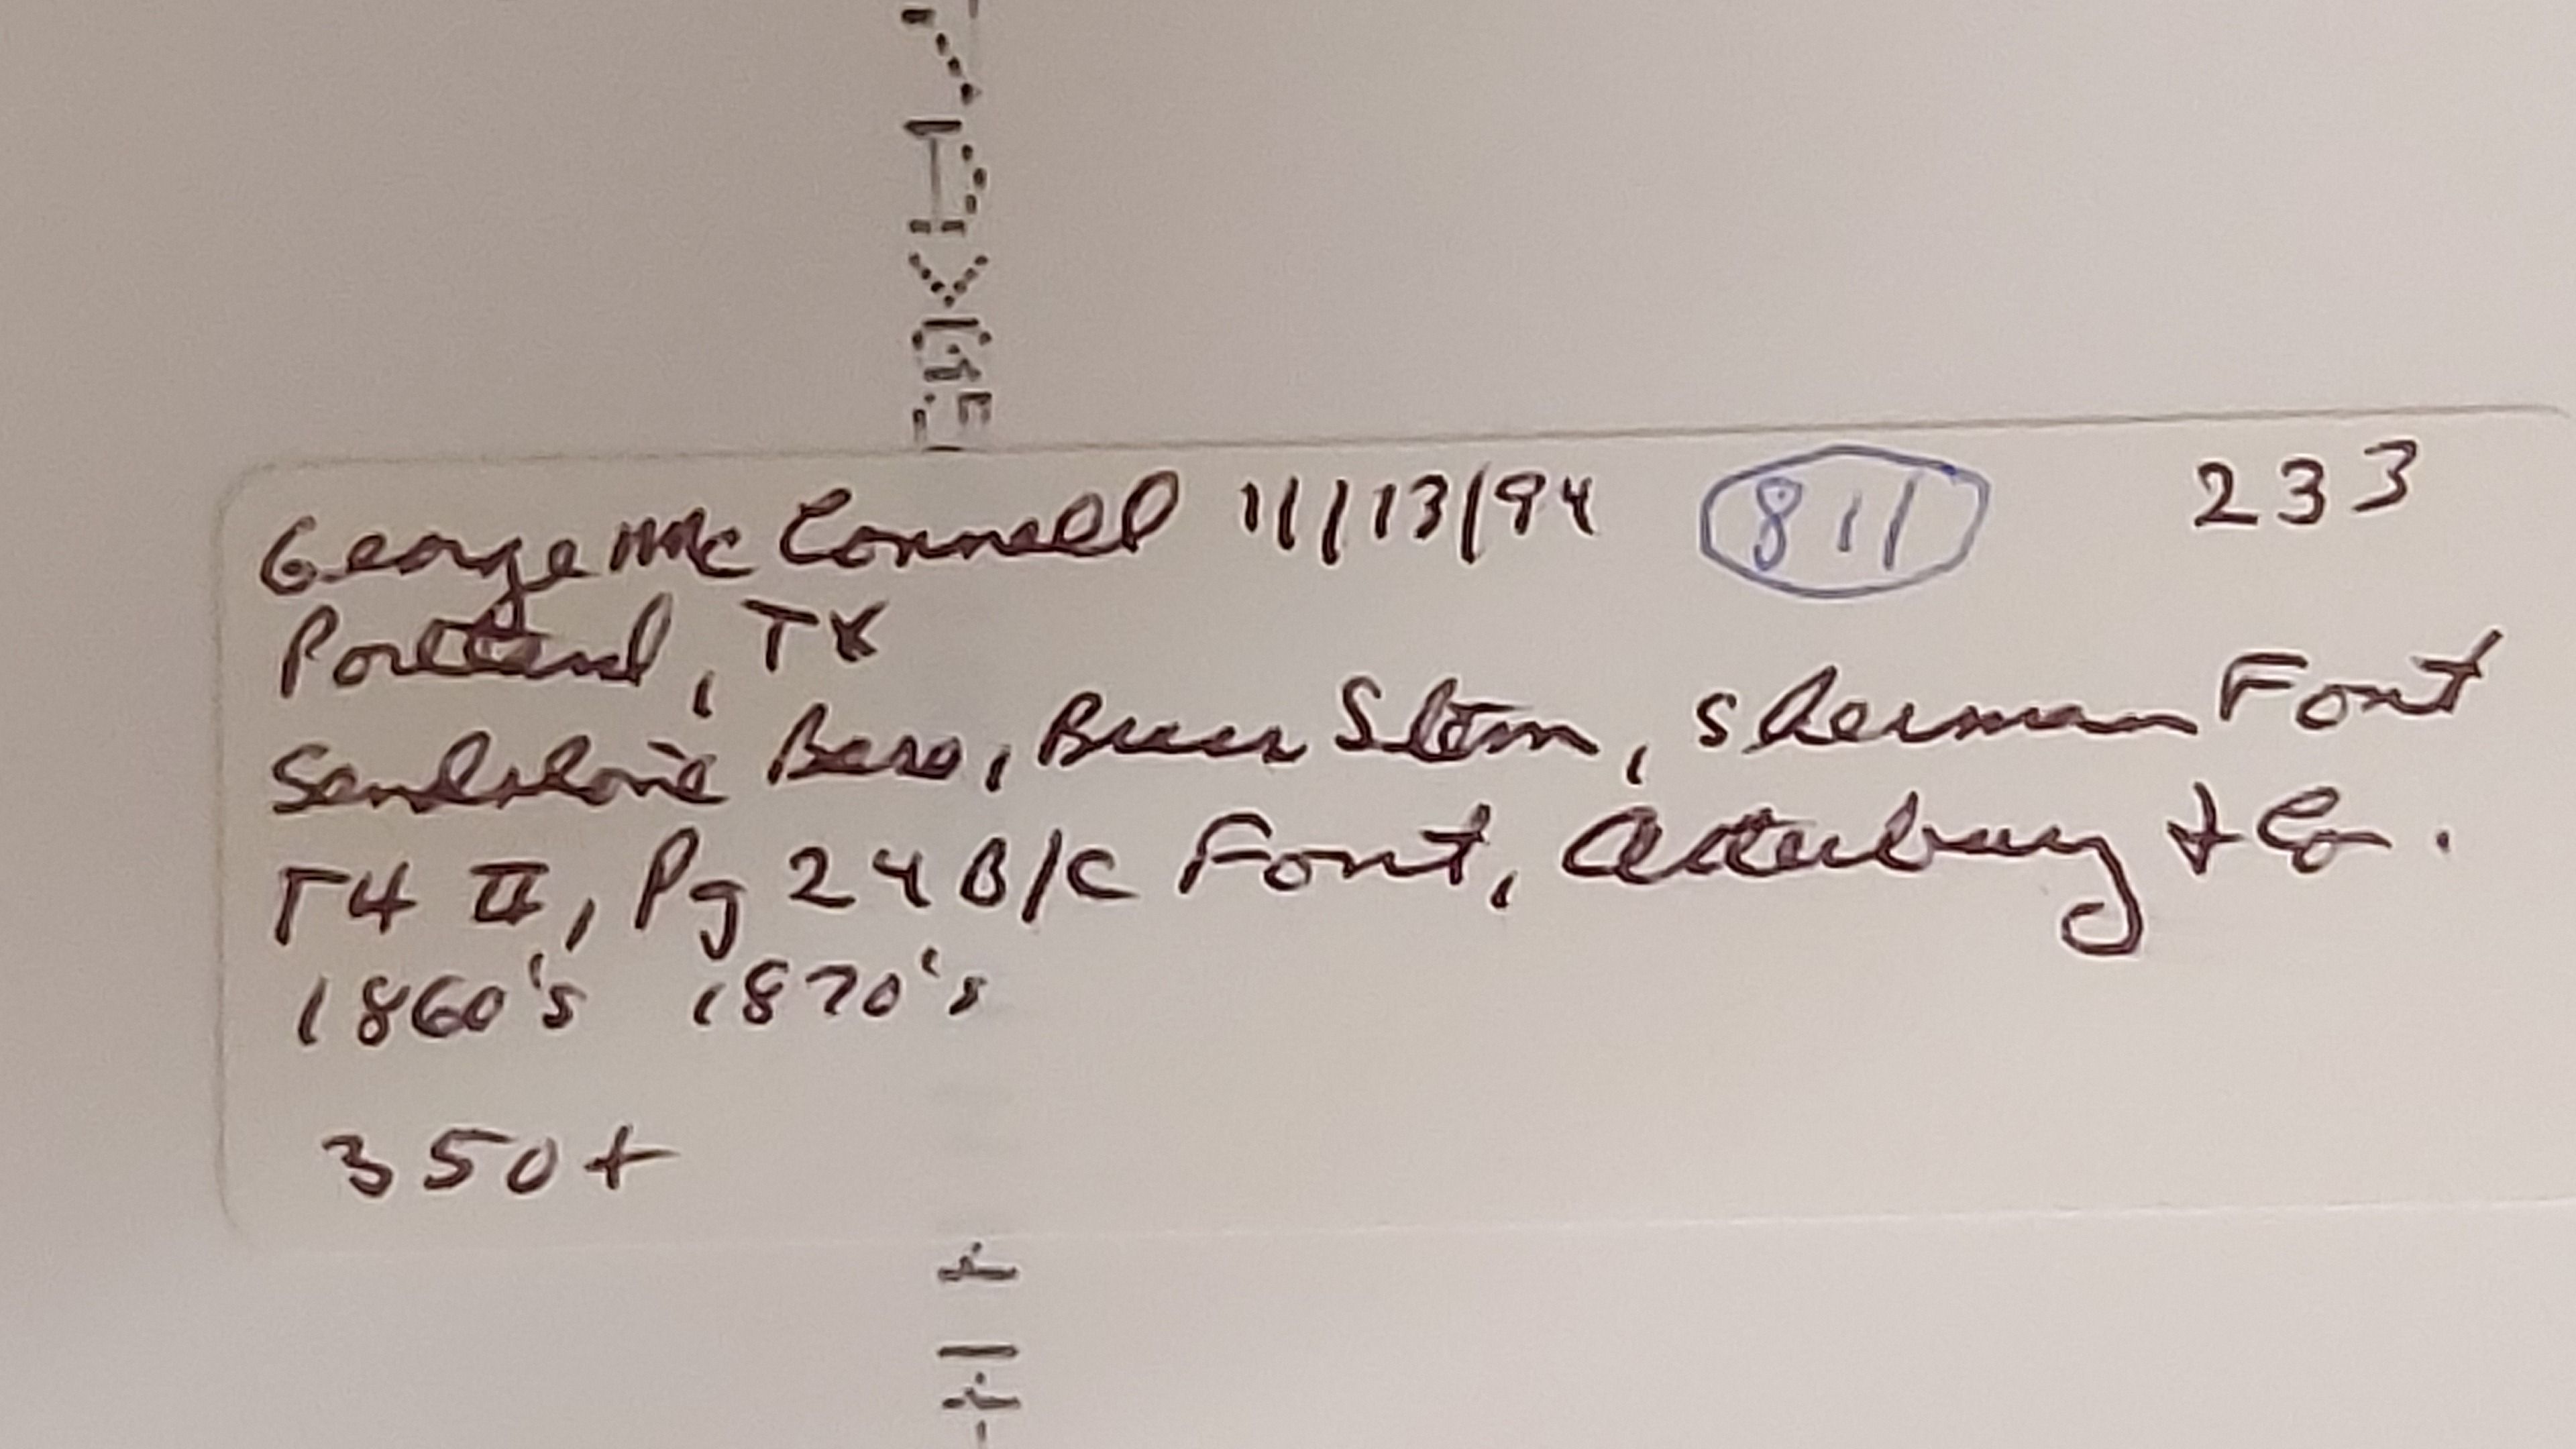 George McConnell 11/13/94 811 233
Portland, TX
Sandstone Base, Brass Stem, Sherman Font
T4 II, Pg 24 B/C Font, Atterbury + Co.
1860's 1870's
350+